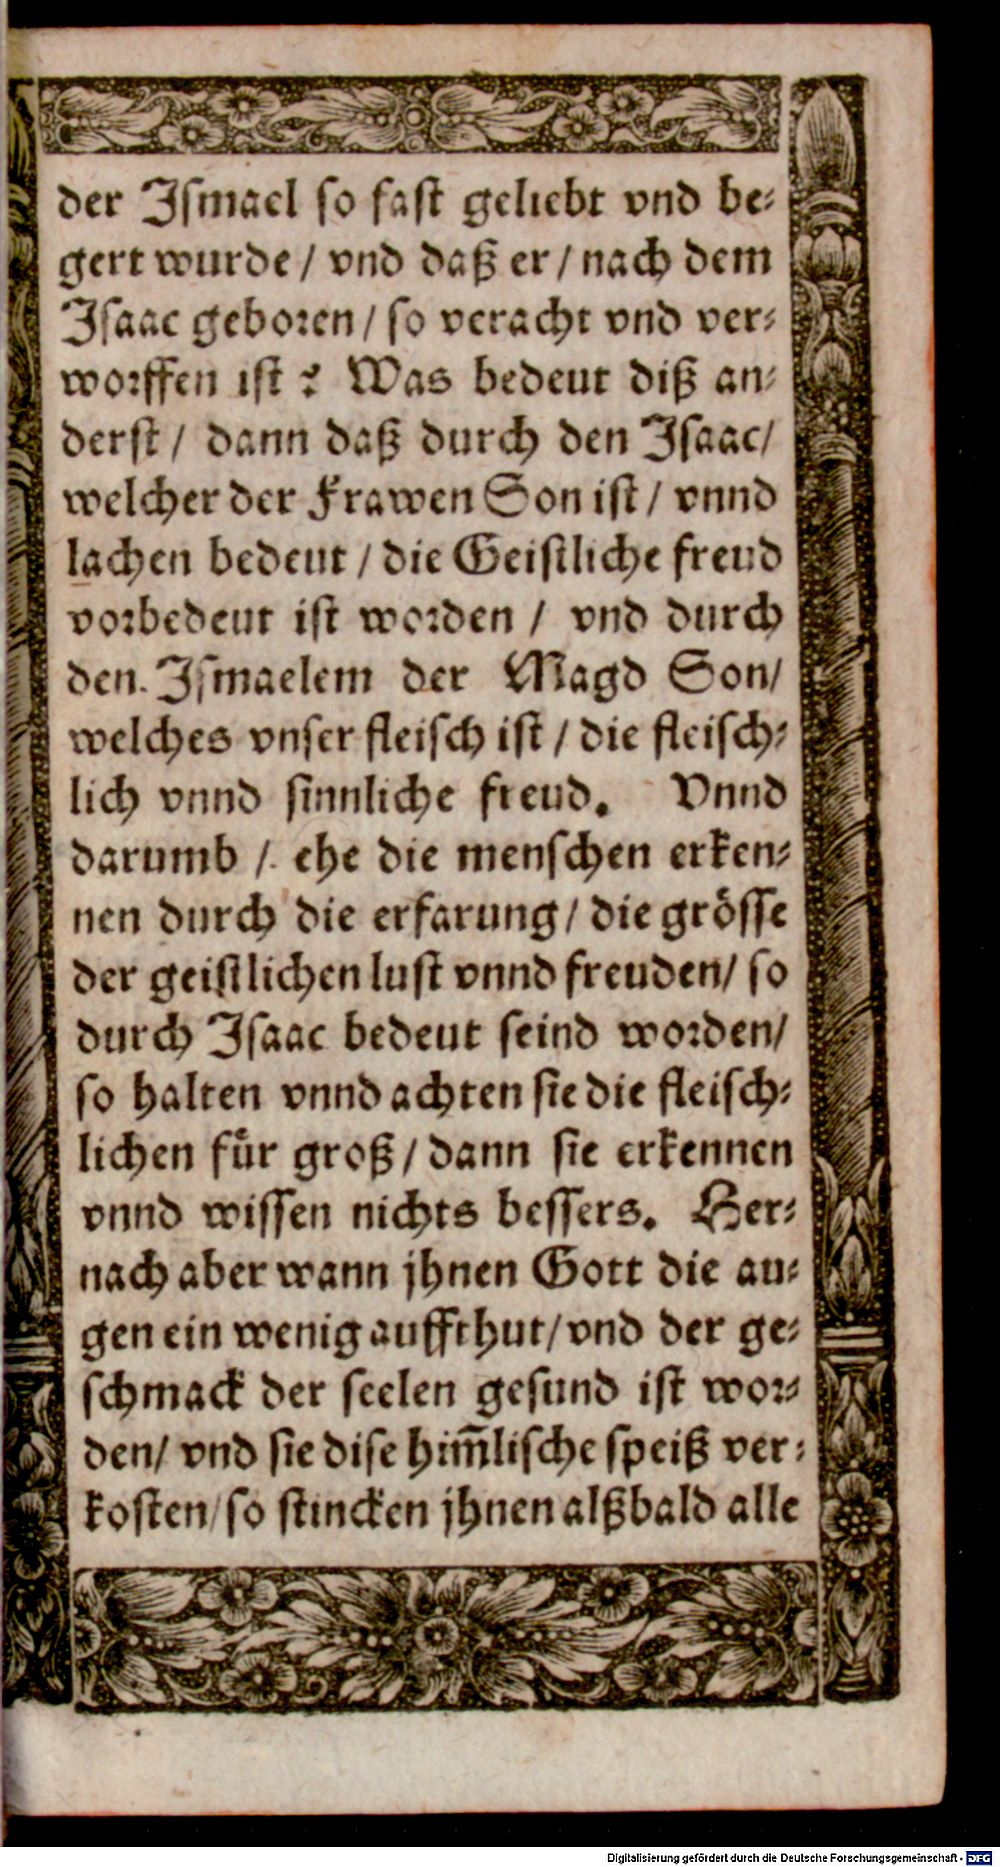 der Ismael so fast geliebt vnd be-
gert wurde / vnd daß er / nach dem
Isaac geboren / so veracht vnd ver-
worffen ist? Was bedeut diß an-
derst / dann daß durch den Isaac/
welcher der Frawen Son ist / vnnd
lachen bedeut / die Geistliche freud
vorbedeut ist worden / vnd durch
den Ismaelem der Magd Son/
welches vnser fleisch ist / die fleisch-
lich vnnd sinnliche freud. Vnnd
darumb / ehe die menschen erken-
nen durch die erfarung / die grösse
der geistlichen lust vnnd freuden / so
durch Isaac bedeut seind worden/
so halten vnnd achten sie die fleisch-
lichen für groß / dann sie erkennen
vnnd wissen nichts bessers. Her-
nach aber wann jhnen Gott die au-
gen ein wenig auffthut / vnd der ge-
schmack der seelen gesund ist wor-
den / vnd sie dise him̃lische speiß ver-
kosten / so stincken jhnen alßbald alle
Digitalisierung gefördert durch die Deutsche Forschungsgemeinschaft - DFG